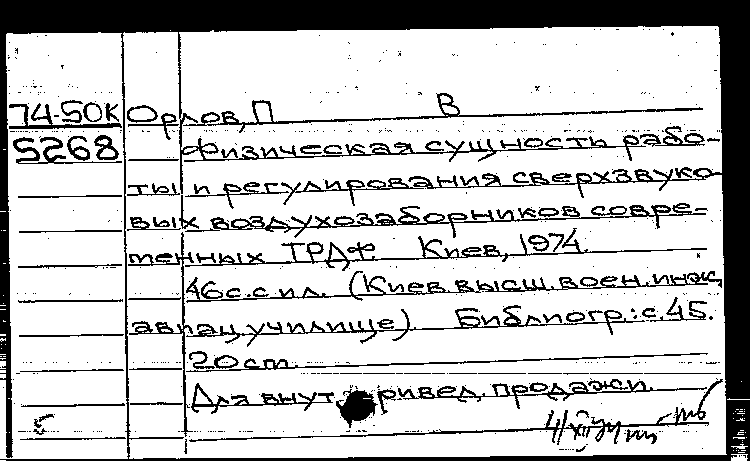 74-50К Орлов, П В
5268 Физическая сущность рабо-
ты и регулирования сверхзвуко-
вых воздухозаборников совре-
менных ТРДФ Киев, 1974.
46с. с ил. (Киев. высш. воен. инж.
авиац. училище) Библиогр.: с. 45.
20 cm.
Для внут ривед. продажи.